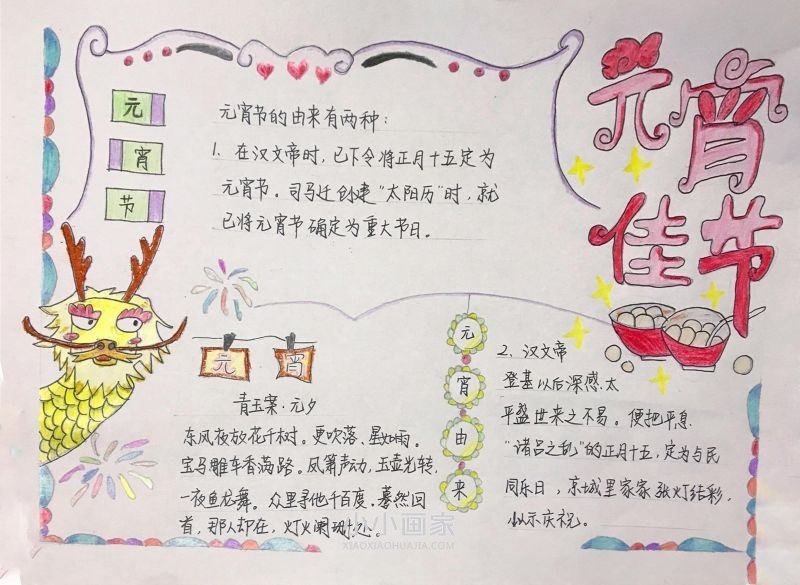 元宵佳节
元
宵
节
元宵节的由来有两种:
1. 在汉文帝时,已下令将正月十五定为
元宵节。司马迁创建"太阳历"时,就
已将元宵节确定为重大节日。
元宵
青玉案·元夕
东风夜放花千树。更吹落、星如雨。
宝马雕车香满路。凤箫声动,玉壶光转,
一夜鱼龙舞。众里寻他千百度。蓦然回
首,那人却在,灯火阑珊处。
元
宵
由
来
2. 汉文帝
登基以后深感太
平盛世来之不易。便把平息
"诸吕之乱"的正月十五,定为与民
同乐日,京城里家家张灯结彩,
以示庆祝。
小小画家
XIAOXIAOHUAJIA.COM